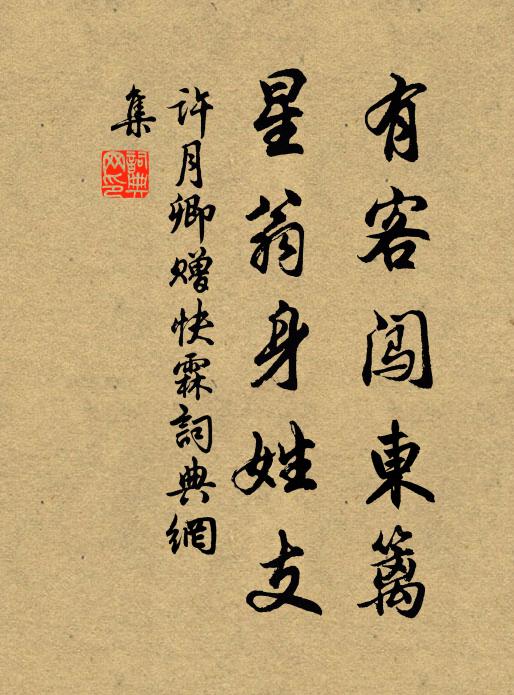 有客闯東籬
星翁身姓支
許月卿贈快霖詞典網
集
詞典網印